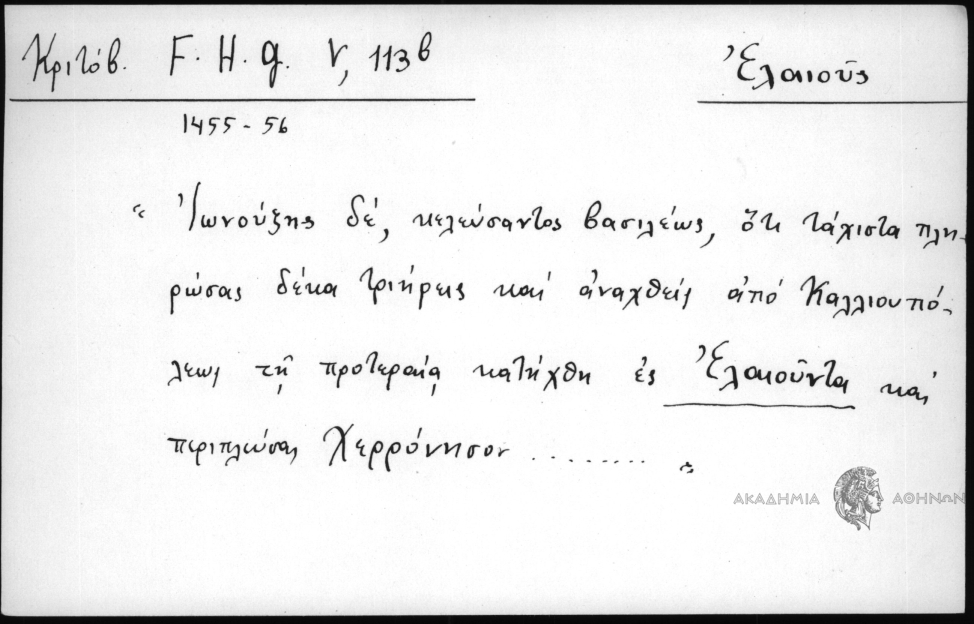 Κριτόβ. F. H. G. V, 113β
Ἐλαιοῦς
1455 - 56
" Ἰωνούζης δέ, κελεύσαντος βασιλέως, ὅτι τάχιστα πλη-
ρώσας δέκα τριήρεις καὶ ἀναχθείς ἀπό Καλλιουπό-
λεως τῇ προτεραίᾳ κατήχθη ἐς Ἐλαιοῦντα καί
περιπλεύσας Χερρόνησον ......... "
ΑΚΑΔΗΜΙΑ ΑΘΗΝΩΝ